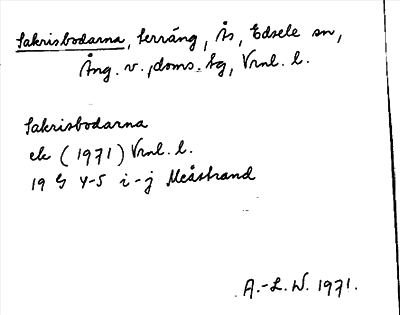 Sakrisbodarna, Terräng, Ås, Edsele sn,
Ång. v., doms. tg, Vrnl. l.
Sakrisbodarna
ek (1971) Vrnl. l.
19 G 4-5 i-j Meåstrand
A.-L. W. 1971.